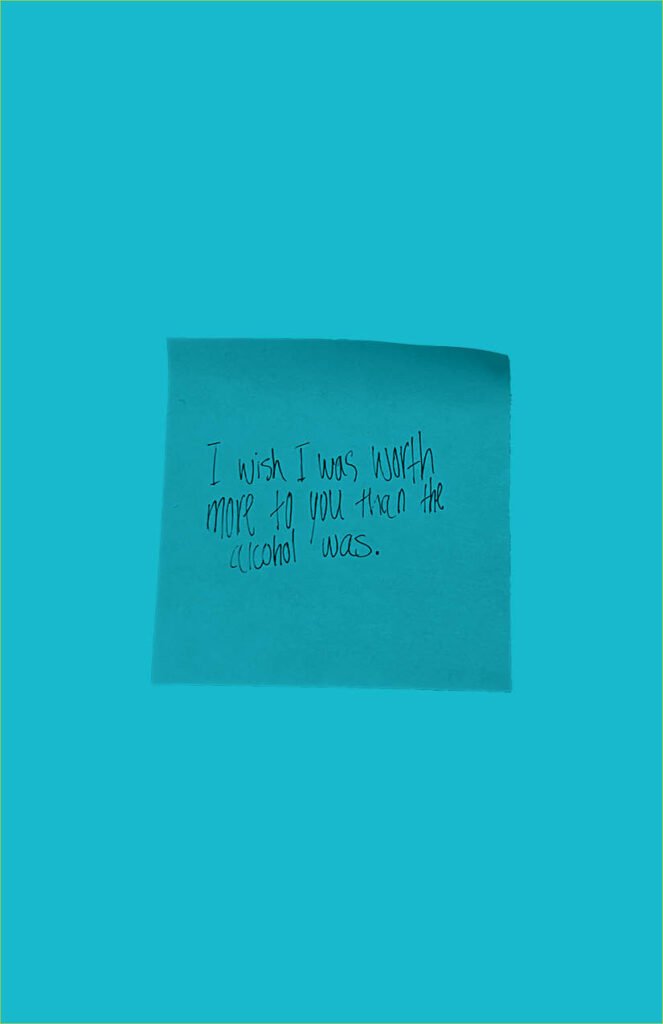 I wish I was worth
more to you than the
alcohol was.